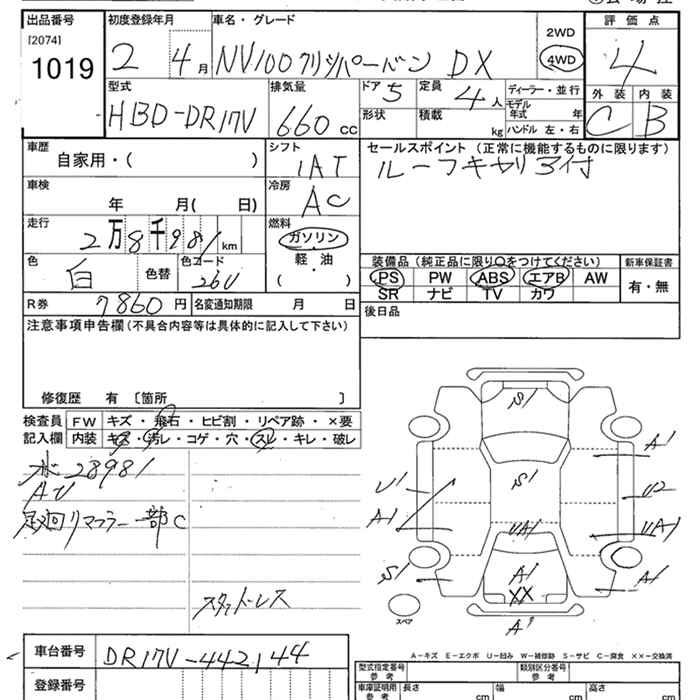 出品番号 初度登録年月 車名・グレード 評価点
[2074]
1019
2 4月 NV100クリッパーバン DX 2WD 4WD 4
型式 排気量 ドア 5 定員 4人 ディーラー・並行 外装 内装
HBD-DR17V 660cc 形状 積載 kg モデル年式 年 ハンドル 左・右 C B
車歴 シフト セールスポイント(正常に機能するものに限ります)
自家用・( ) IAT ルーフキャリア付
車検 冷房
年 月( 日) AC
走行 燃料
2万8千981km ガソリン
色 色替 色コード 軽油
白 26U ( )
装備品(純正品に限り○をつけてください) 新車保証書
PS PW ABS エアB AW 有・無
SR ナビ TV カワ
R券 7860円 名変通知期限 月 日 後日品
注意事項申告欄(不具合内容等は具体的に記入して下さい)
修復歴 有 〔箇所 〕
検査員 FW キズ・飛石・ヒビ割・リペア跡・×要
記入欄 内装 キズ・汚レ・コゲ・穴・スレ・キレ・破レ
28981
AU
リマフラー一部C
スタッドレス
S1
A1
S1
U1 U2
A1 UA1 UA1
S1 A1 A1
XX
スペア
A1
A-キズ E-エクボ U-凹み W-補修跡 S-サビ C-腐食 XX-交換済
車台番号 DR17V-442144
登録番号
型式指定番号 参考 類別区分番号 参考
車庫証明用 参考 長さ cm 幅 cm 高さ cm